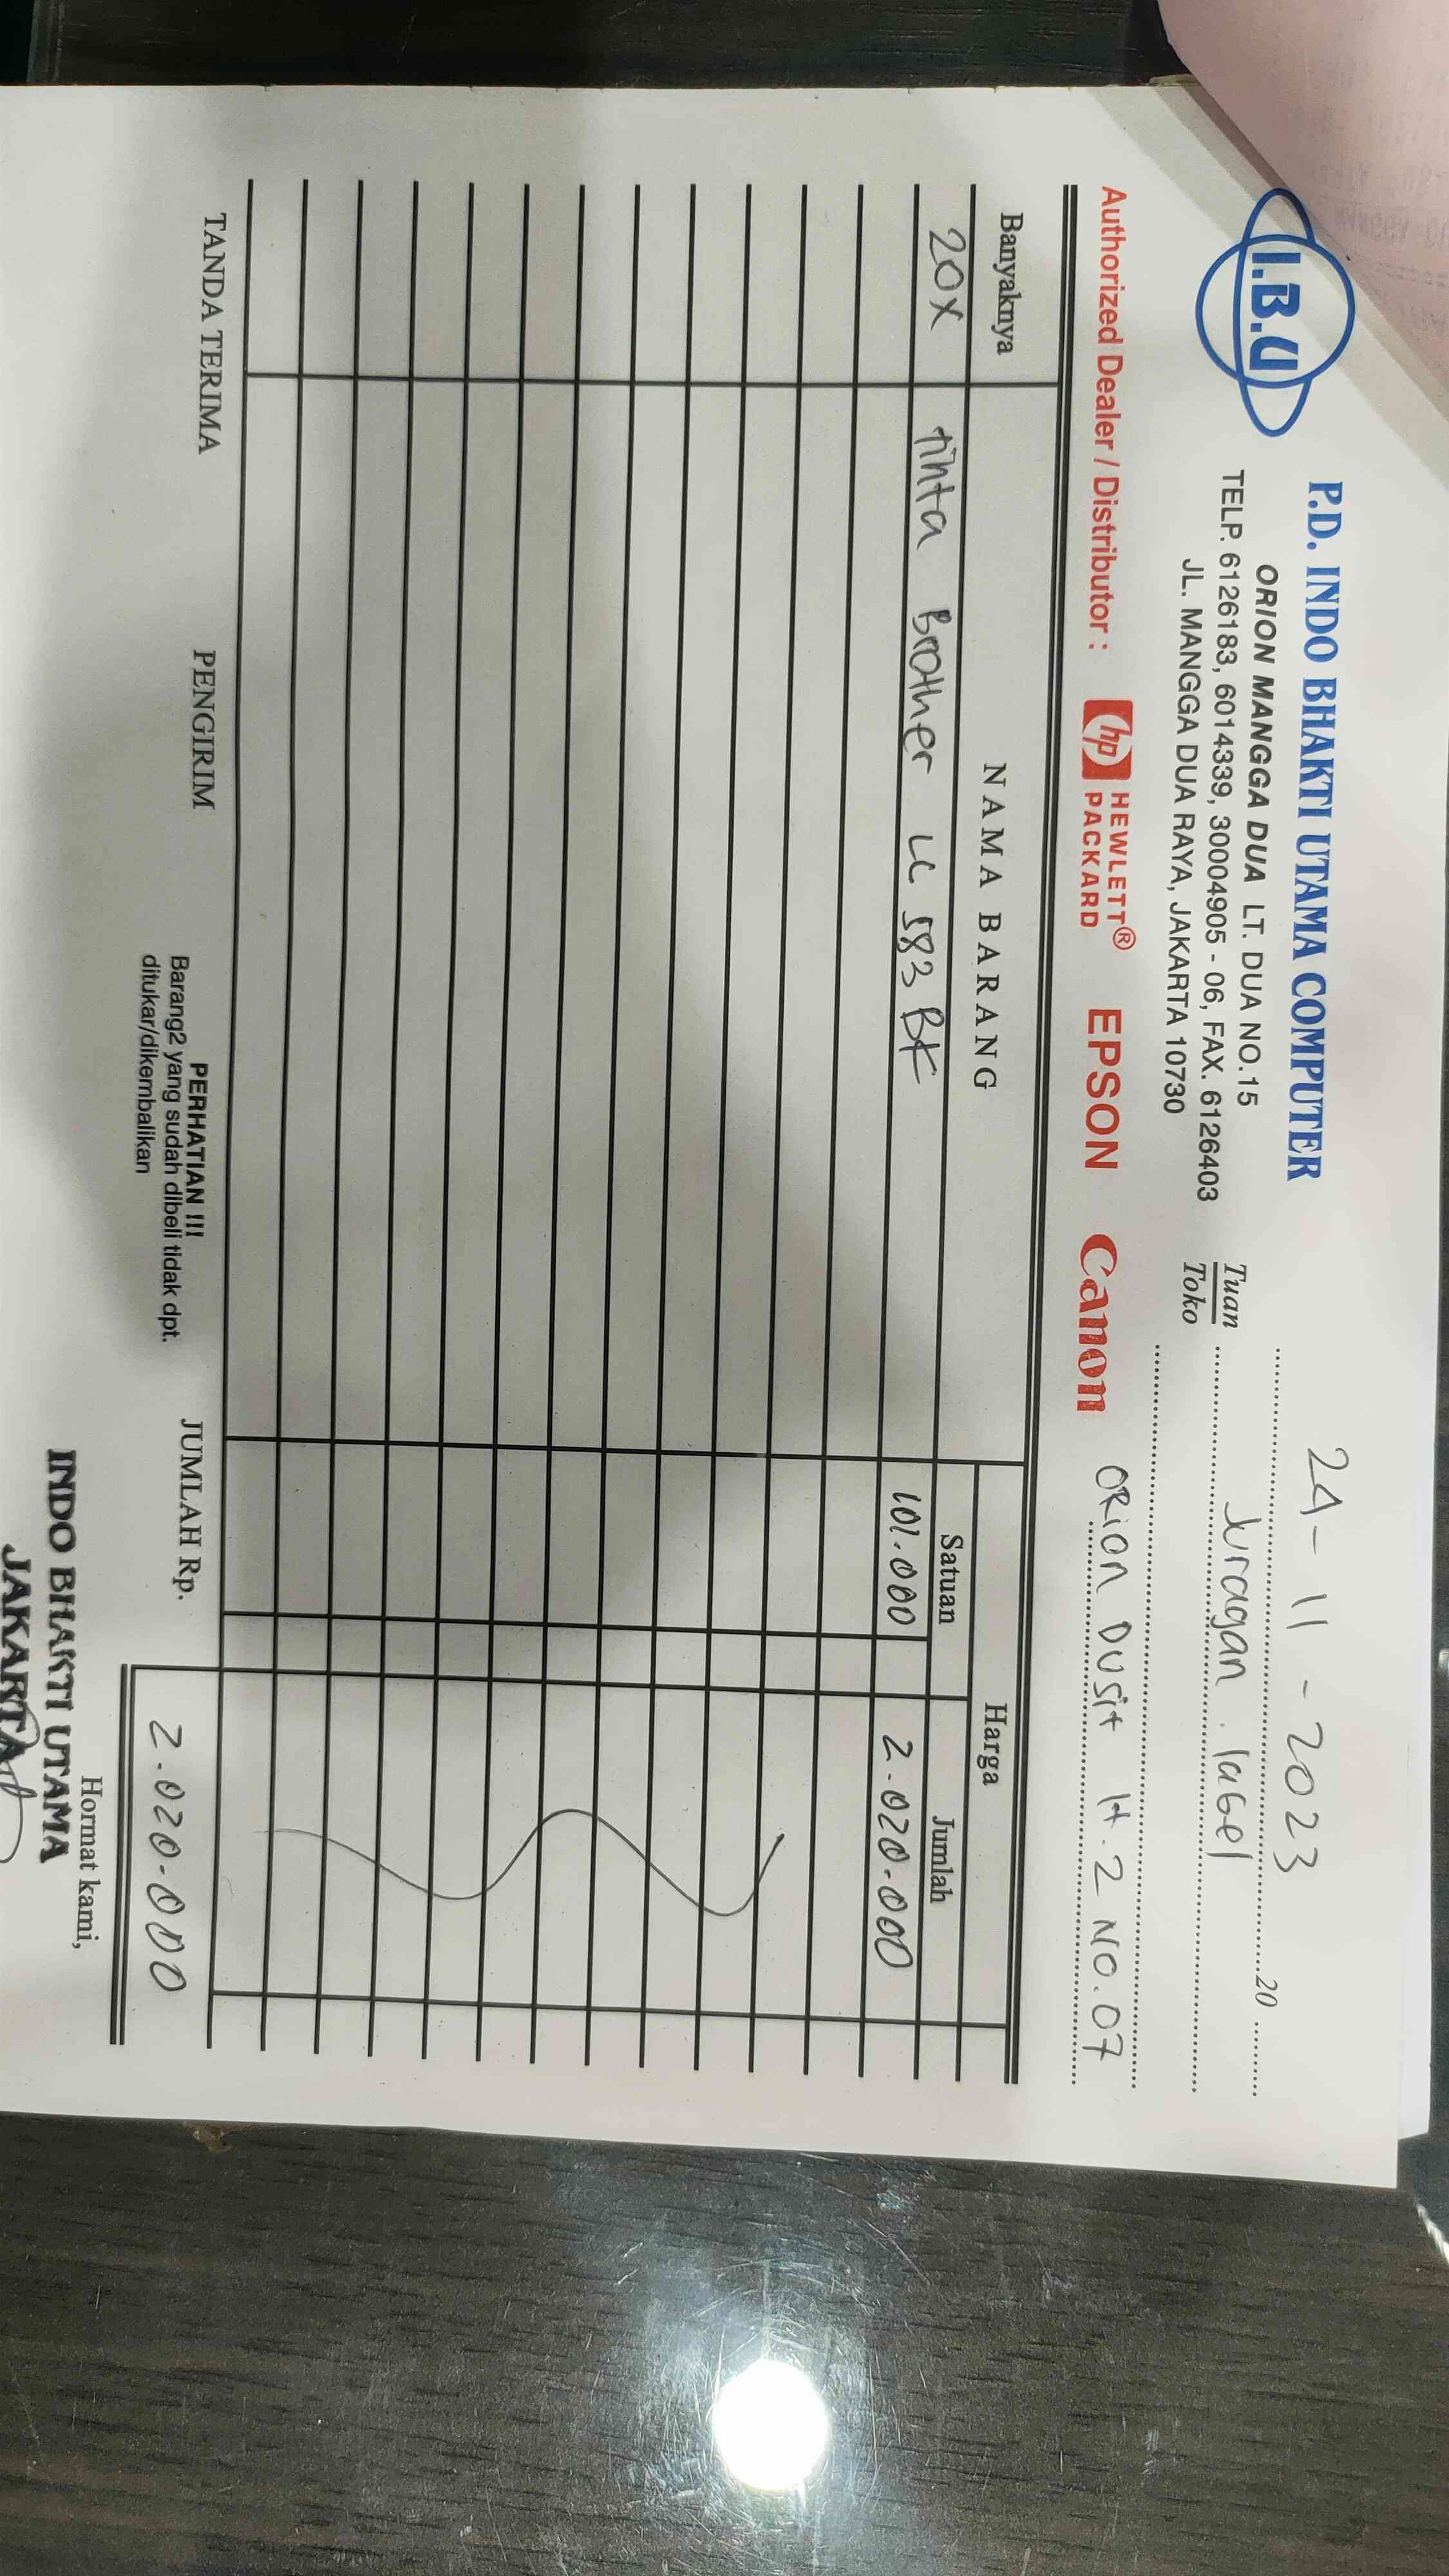 I.B.U
P.D. INDO BHAKTI UTAMA COMPUTER
ORION MANGGA DUA LT. DUA NO.15
TELP. 6126183, 6014339, 30004905 - 06, FAX. 6126403
JL. MANGGA DUA RAYA, JAKARTA 10730
24-11-2023
20
Tuan
Toko
Juragan label
ORion DUSit H.2 NO.07
Authorized Dealer / Distributor : hp HEWLETT® PACKARD EPSON Canon
Banyaknya NAMA BARANG Harga
Satuan Jumlah
20X tinta Brother LC 583 BK 101.000 2.020.000
TANDA TERIMA PENGIRIM JUMLAH Rp. 2.020.000
PERHATIAN !!!
Barang2 yang sudah dibeli tidak dpt.
ditukar/dikembalikan
Hormat kami,
INDO BHAKTI UTAMA
JAKARTA